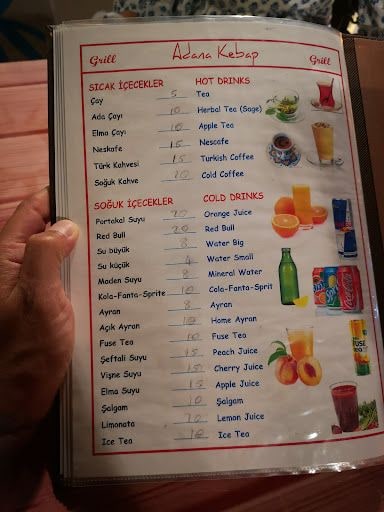 Grill Adana Kebap Grill
SICAK İÇECEKLER HOT DRINKS
Çay 5 Tea
Ada Çayı 10 Herbal Tea (Sage)
Elma Çayı 10 Apple Tea
Neskafe 15 Nescafe
Türk Kahvesi 15 Turkish Coffee
Soğuk Kahve 20 Cold Coffee
SOĞUK İÇECEKLER COLD DRINKS
Portakal Suyu 20 Orange Juice
Red Bull 20 Red Bull
Su büyük 8 Water Big
Su küçük 4 Water Small
Maden Suyu 8 Mineral Water
Kola-Fanta-Sprite 10 Cola-Fanta-Sprit
Ayran 8 Ayran
Açık Ayran 10 Home Ayran
Fuse Tea 10 Fuse Tea
Şeftali Suyu 15 Peach Juice
Vişne Suyu 15 Cherry Juice
Elma Suyu 15 Apple Juice
Şalgam 10 Şalgam
Limonata Lemon Juice
Ice Tea 10 Ice Tea